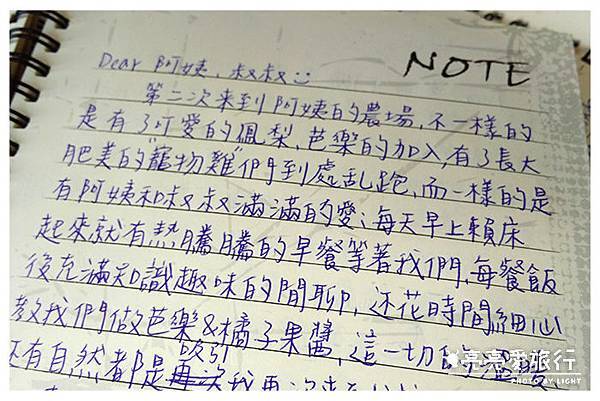 NOTE
Dear 阿姨、叔叔
第二次來到阿姨的農場,不一樣的
是有了可愛的鳳梨,芭樂的加入,有了長大
肥美的"寵物雞"們到處乱跑,而一樣的是
有阿姨和叔叔滿滿的愛;每天早上賴床
起來就有熱騰騰的早餐等著我們,每餐飯
後充滿知識趣味的閒聊,还花時間細心
教我們做芭樂&橘子果醬,這一切的溫暖
还有自然都是吸引我再次來到
亮亮愛旅行
PHOTO BY LIGHT